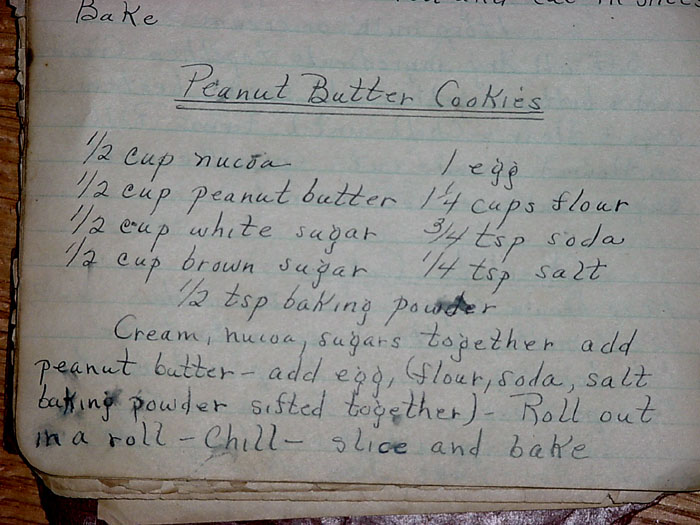 and cut in slices
Bake
Peanut Butter Cookies
1/2 cup nucoa 1 egg
1/2 cup peanut butter 1 1/4 cups flour
1/2 cup white sugar 3/4 tsp soda
1/2 cup brown sugar 1/4 tsp salt
1/2 tsp baking powder
Cream, nucoa, sugars together add
peanut butter - add egg, (flour, soda, salt
baking powder sifted together) - Roll out
in a roll - Chill - slice and bake